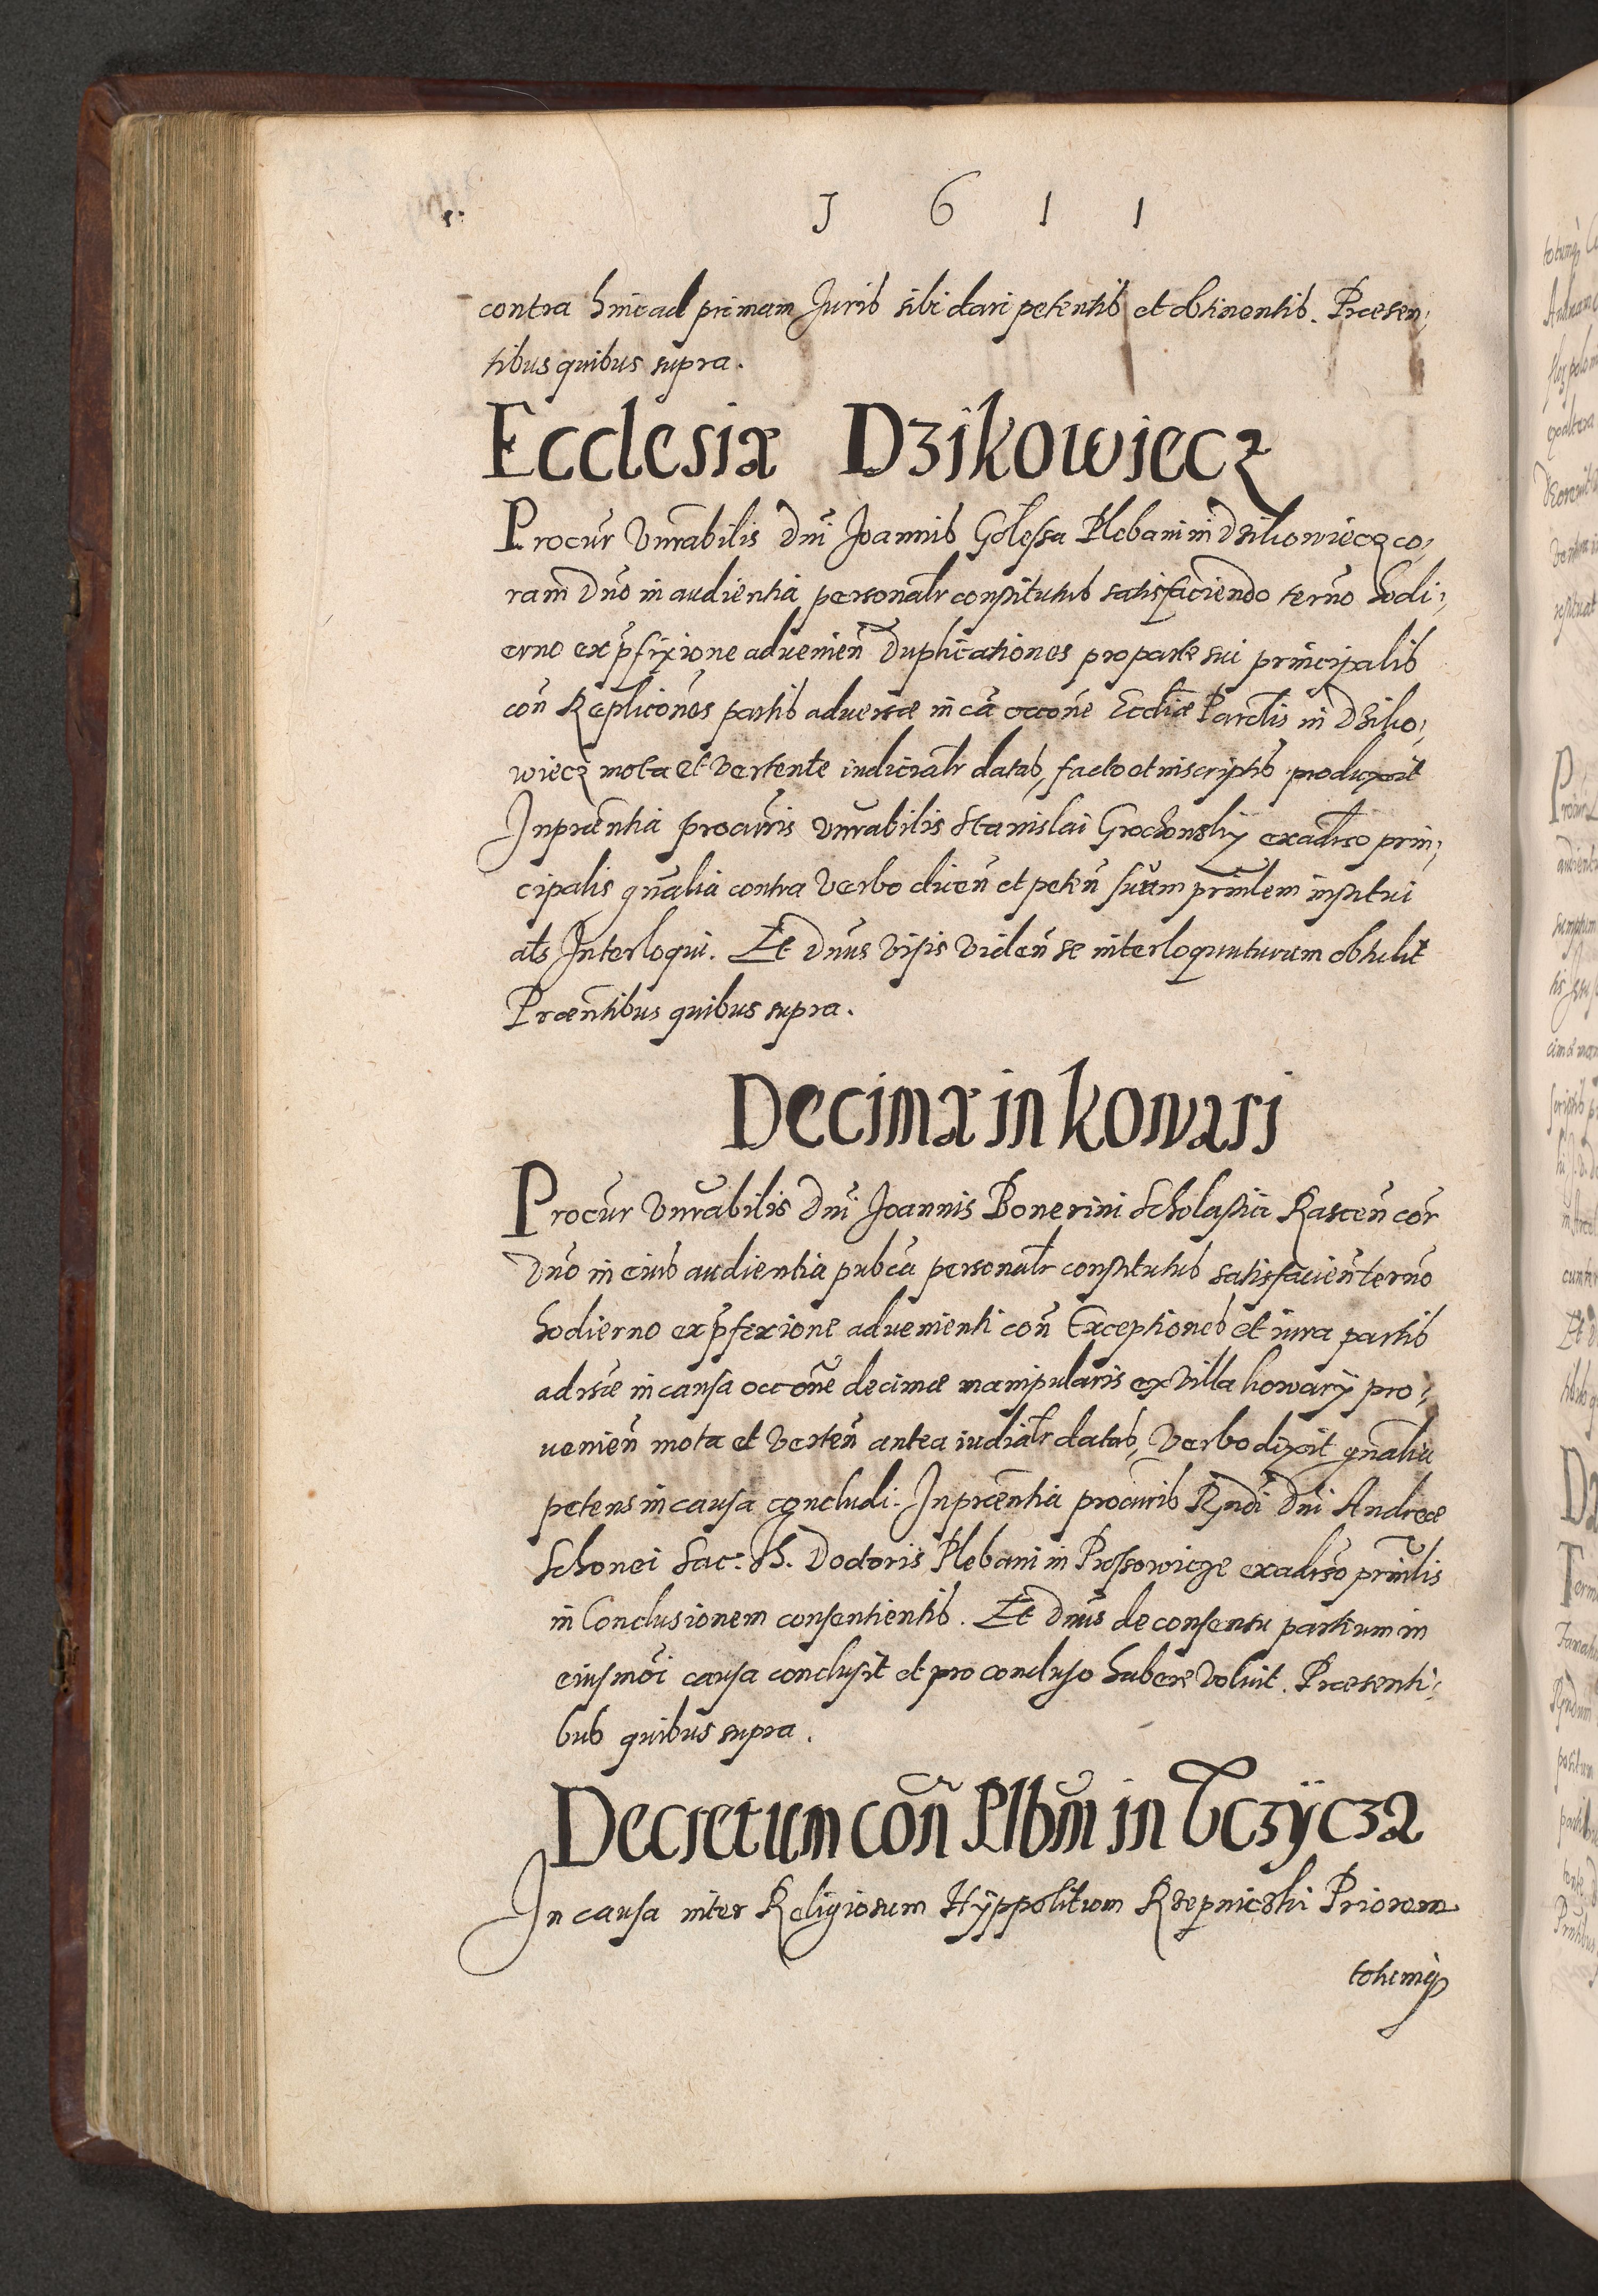 1 6 1 1
contra hinc ad primam Juris sibi dari petentis et obtinentis. Præsen,
tibus quibus supra.
Ecclesiæ Dzikowiecz
Procur̃ Vnrabilis Dñi Joannis Golessa Plebani in Dzikowiecz co,
ram Dño in audientia personalr constitutus satisfaciendo terño hodi,
erno ex p̃fixione advenien̄ Duplicationes pro parte sui principalis
con̄ Replicões partis adversæ in cã occõne Eccliæ Parolis in Dziko,
wiecz mota et vertente iudicialr datas, facto et in scriptis produxit
In præntia procuris Vnrabilis Stanislai Grochowskiy ex adrso prin,
cipalis gñalia contra verbo dicen̄ et peten̄ suum prinlem institui
als Interloqui. Et Dnus visis viden̄ se interloquuturum obtulit
Præntibus quibus supra.
Decimæ in Kowari
Procur̃ Vnrabilis Dñi Joannis Bonerini Scholastici Rascen̄ cor̃
Dño in eius audientia pubca personalr constitutus satisfacien̄ terño
hodierno ex p̃fixione advenienti con̄ Exceptiones et iura partis
adrsæ in causa occõne decimæ manipularis ex Villa kowary pro,
venien̄ mota et verten̄ antea iudialr datas, Verbo dixit gñalia
petens in causa concludi. In præntia procuris Rñdi Dñi Andreæ
Schonei Sac: Th. Doctoris Plebani in Prossowicze ex adrso prinlis
in Conclusionem consentientis. Et Dnus de consensu partium in
eiusmõi causa conclusit et pro concluso habere voluit. Præsenti,
bus quibus supra.
Decretum con̄ Plbm̃ in Vczÿcza
In causa inter Religiosum Hÿppolitum Rzepniczki Priorem
totumq̃